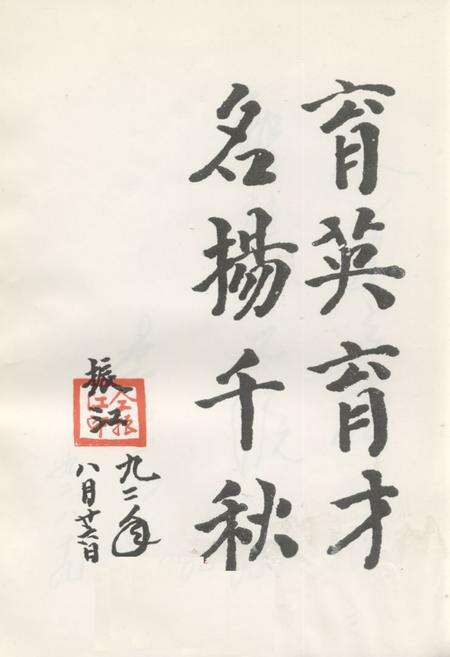 育英育才
名揚千秋
振江
九二年
八月廿六日